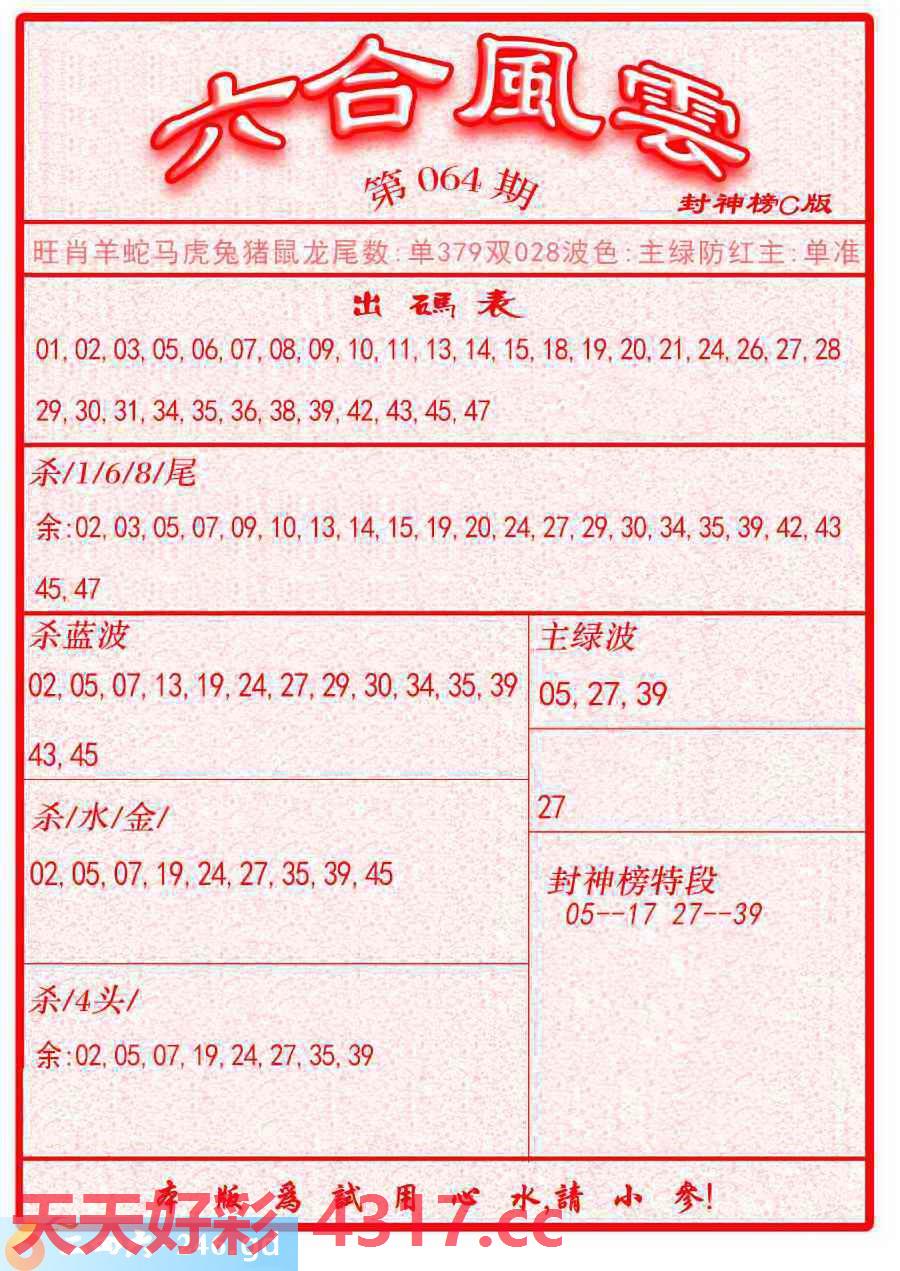 六合風雲
第064期
封神榜C版
旺肖羊蛇马虎兔猪鼠龙尾数:单379双028波色:主绿防红主:单准
出碼表
01,02,03,05,06,07,08,09,10,11,13,14,15,18,19,20,21,24,26,27,28
29,30,31,34,35,36,38,39,42,43,45,47
杀/1/6/8/尾
余:02,03,05,07,09,10,13,14,15,19,20,24,27,29,30,34,35,39,42,43
45,47
杀蓝波
02,05,07,13,19,24,27,29,30,34,35,39
43,45
主绿波
05,27,39
27
杀/水/金/
02,05,07,19,24,27,35,39,45
封神榜特段
05--17 27--39
杀/4头/
余:02,05,07,19,24,27,35,39
本版爲試用心水,請小參!
天天好彩 4317.cc
246.gd